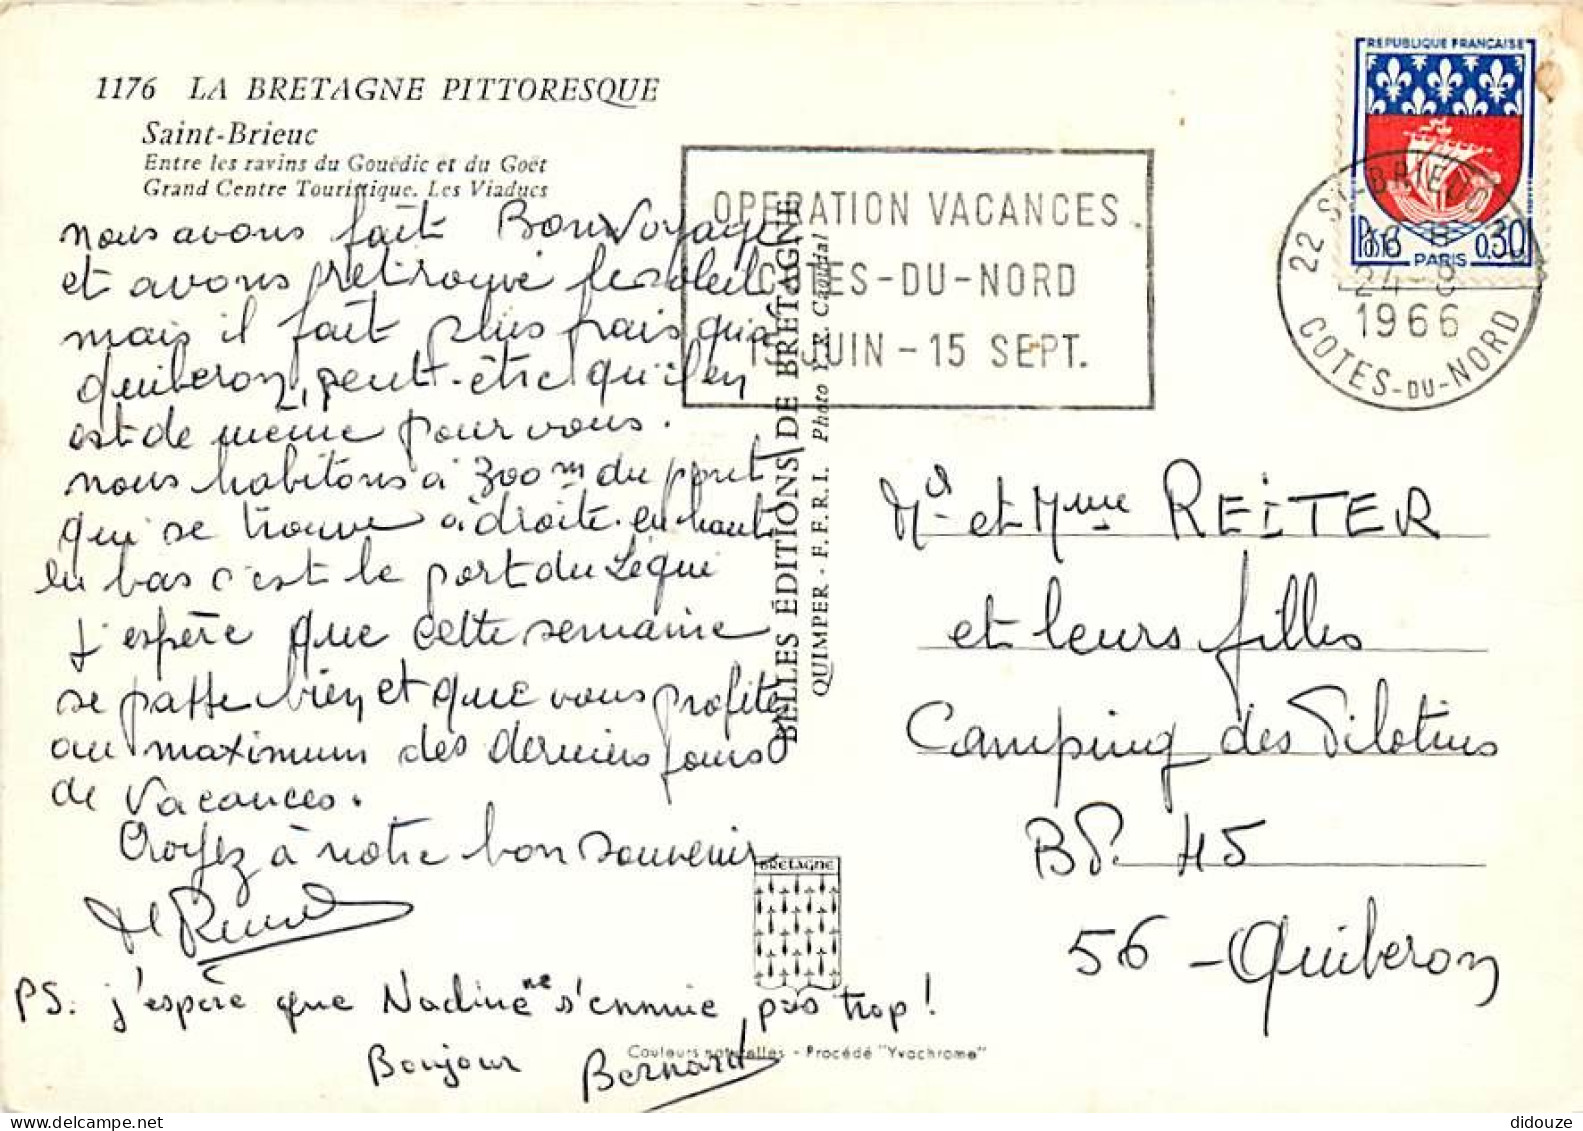 1176 LA BRETAGNE PITTORESQUE
Saint-Brieuc
Entre les ravins du Gouëdic et du Goët
Grand Centre Touristique. Les Viaducs
nous avons fait Bon Voyage
et avons retrouvé le soleil
mais il fait plus frais qu'à
Quiberon, peut-être qu'il en
est de même pour vous.
nous habitons à 300m du pont
qui se trouve à droite en haut
en bas c'est le port du Légué
J'espère que cette semaine
se passe bien et que vous profitez
au maximum des derniers jours
de Vacances.
Croyez à notre bon souvenir
PS. j'espère que Nadine ne s'ennuie pas trop!
Bonjour Bernard
BELLES ÉDITIONS DE BRETAGNE
QUIMPER - F.E.R.I. Photo Y.R. Caoudal
BRETAGNE
Couleurs naturelles - Procédé "Yvochrome"
OPERATION VACANCES
COTES-DU-NORD
15 JUIN - 15 SEPT.
REPUBLIQUE FRANÇAISE
POSTES 0.30
PARIS
22 ST-BRIEUC
24-8
1966
COTES-DU-NORD
Mr et Mme REITER
et leurs filles
Camping des Pilotins
BP. 45
56 - Quiberon
didouze